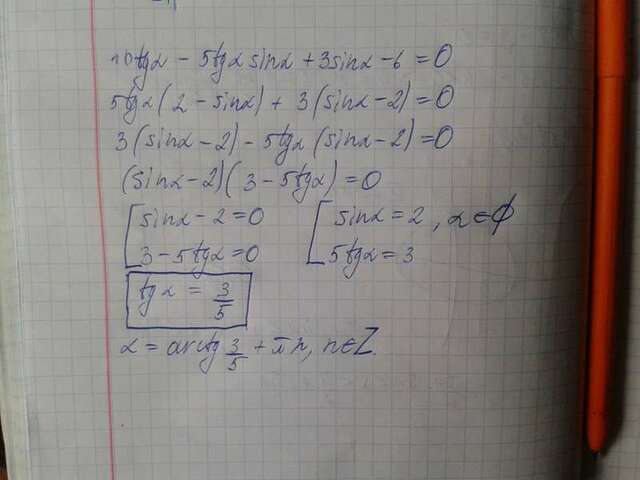 10tgα − 5tgα sinα + 3sinα − 6 = 0
5tgα(2 − sinα) + 3(sinα − 2) = 0
3(sinα − 2) − 5tgα(sinα − 2) = 0
(sinα − 2)(3 − 5tgα) = 0
[ sinα − 2 = 0 [ sinα = 2, α ∈ ϕ
3 − 5tgα = 0 5tgα = 3
tgα = 3/5
α = arctg 3/5 + πn, n∈Z.